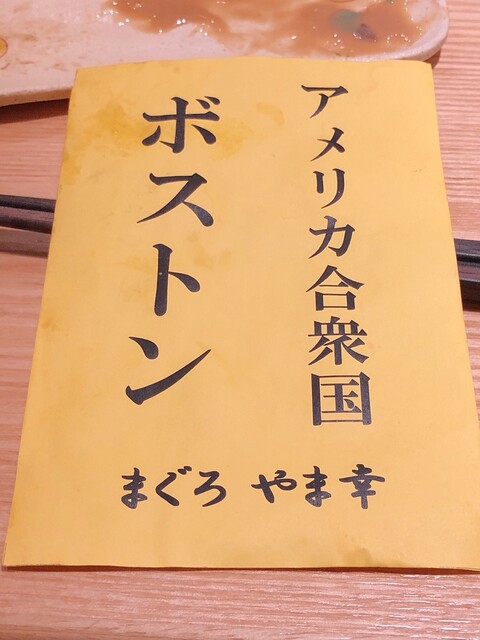 アメリカ合衆国
ボストン
まぐろ やま幸